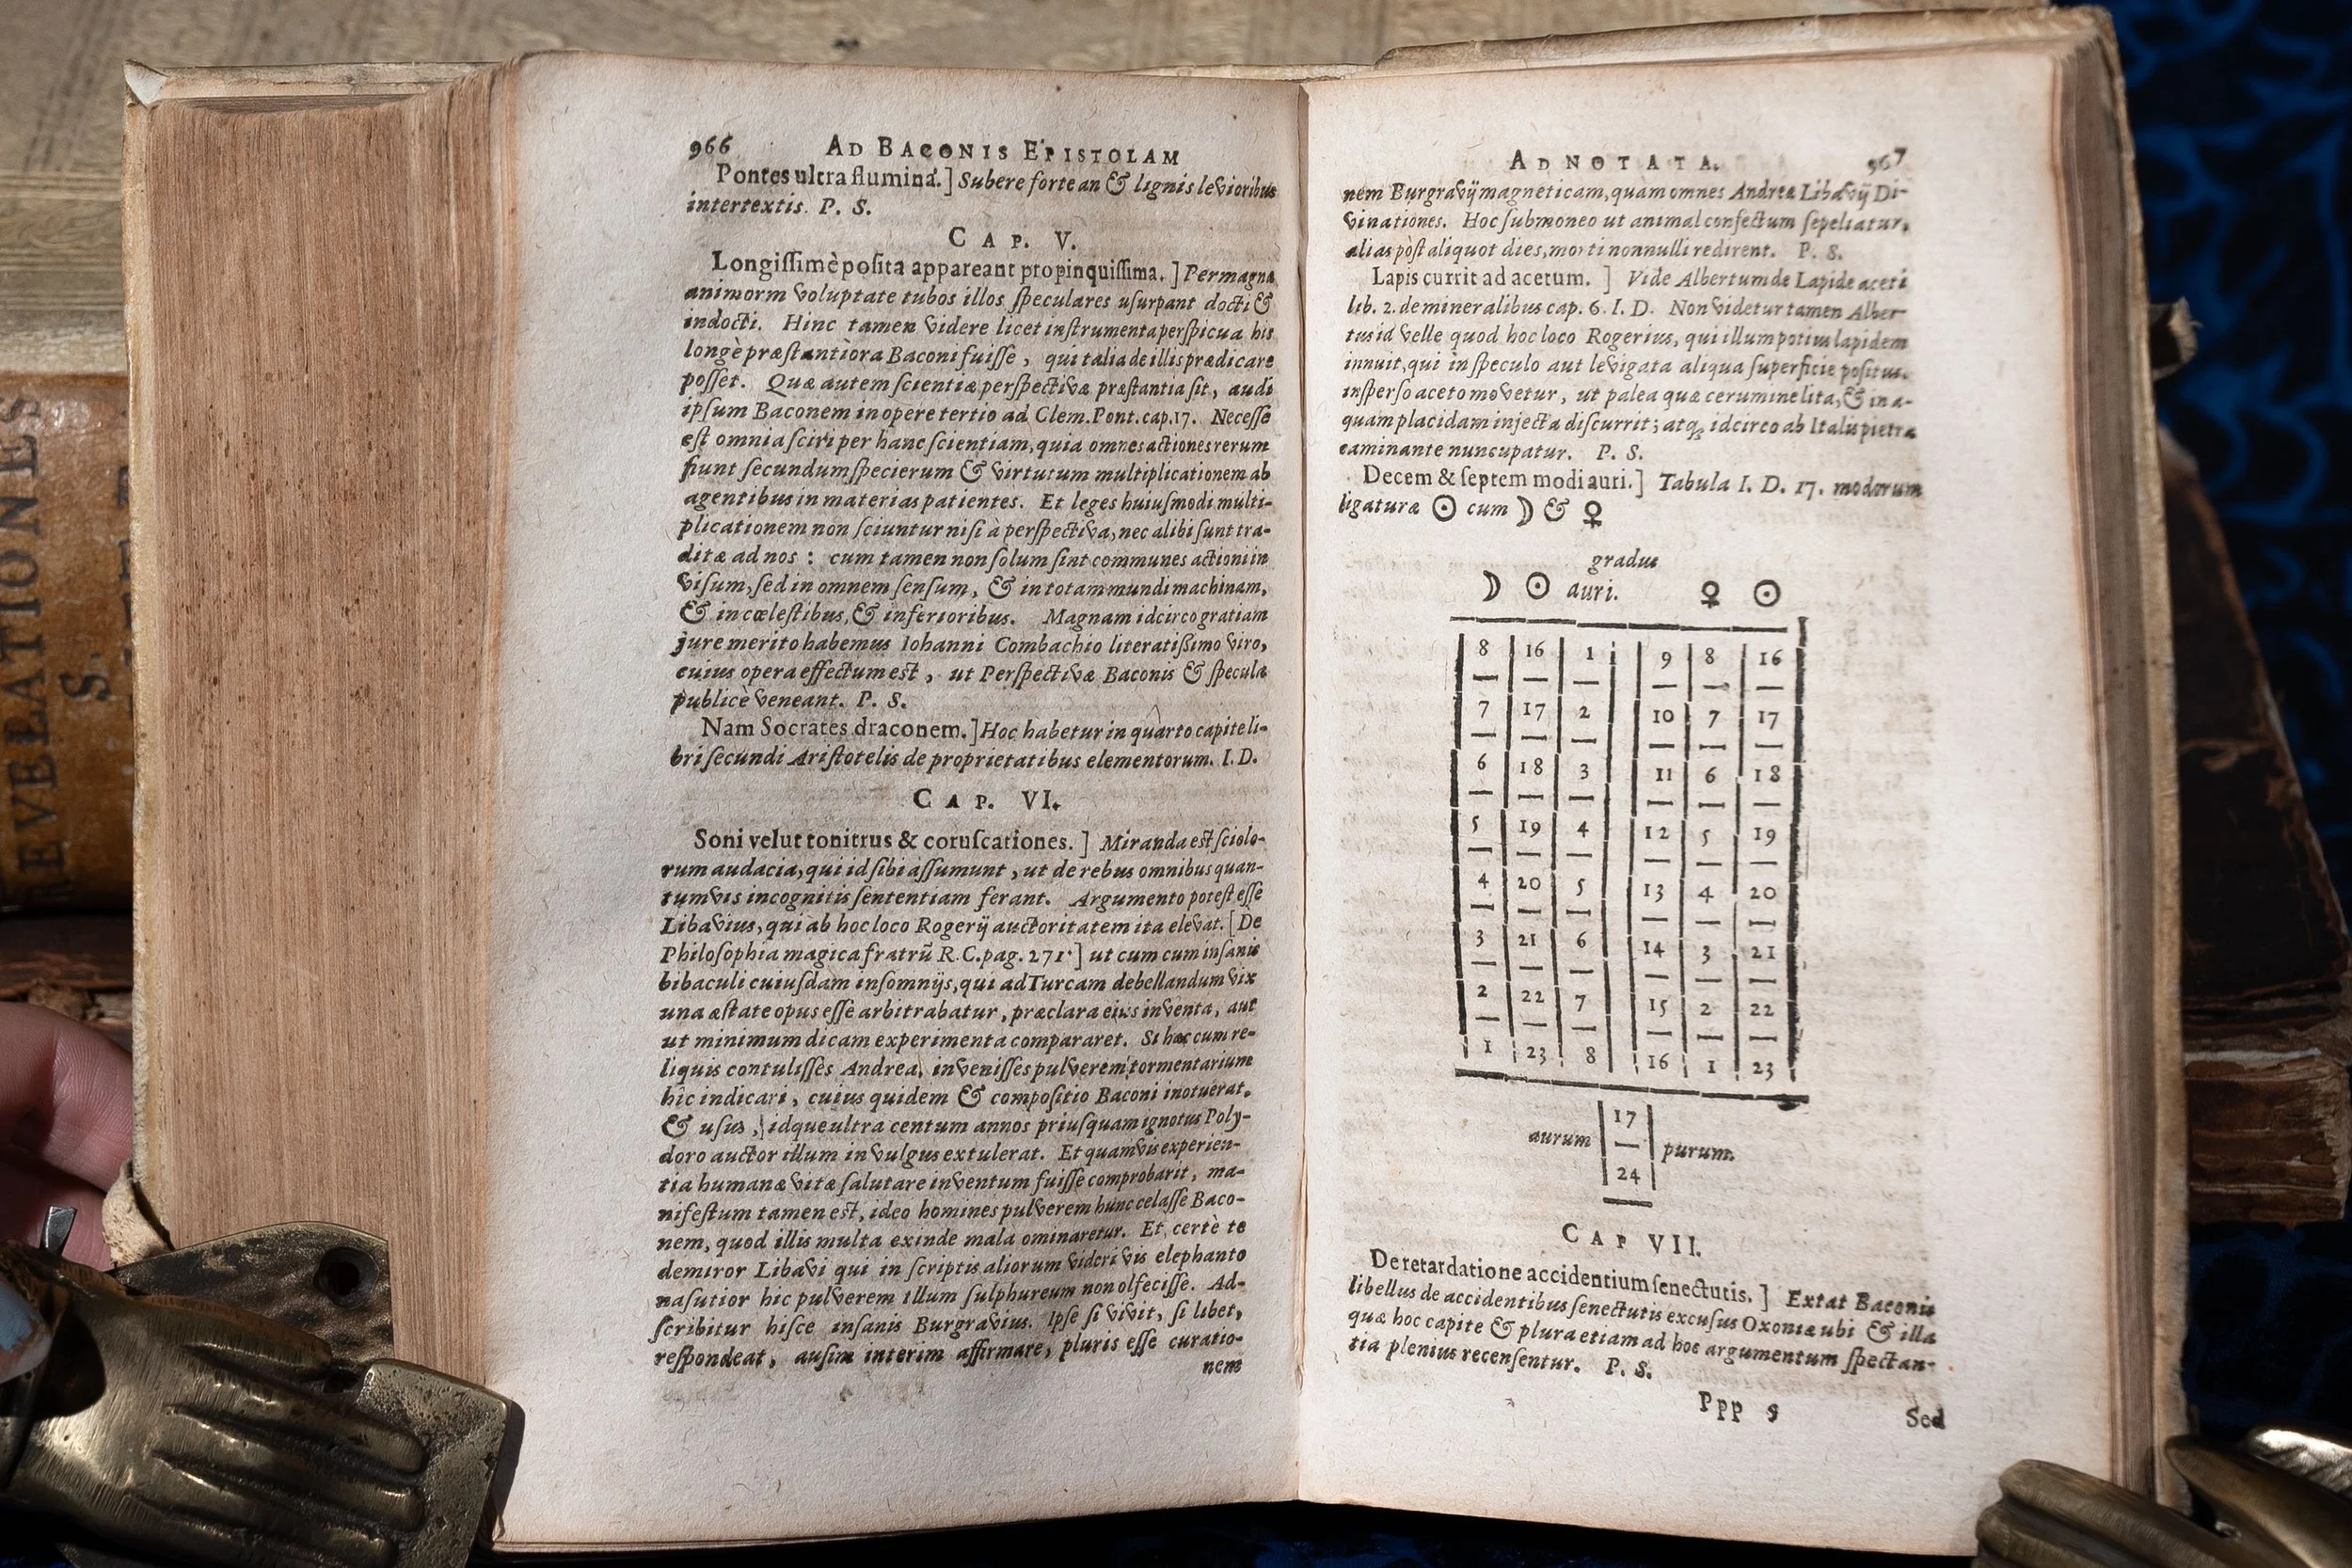 966 AD BACONIS EPISTOLAM
Pontes ultra flumina.] Subere fortean & lignis levioribus
intertextis. P. S.
CAP. V.
Longissimè posita appareant propinquissima.] Permagna
animorm voluptate tubos illos speculares usurpant docti &
indocti. Hinc tamen videre licet instrumenta perspicua his
longè præstantiora Baconi fuisse, qui talia de illis prædicare
posset. Quæ autem scientiæ perspectivæ præstantia sit, audi
ipsum Baconem in opere tertio ad Clem. Pont. cap. 17. Necesse
est omnia sciri per hanc scientiam, quia omnes actiones rerum
fiunt secundum specierum & virtutum multiplicationem ab
agentibus in materias patientes. Et leges huiusmodi multi-
plicationem non sciuntur nisi à perspectiva, nec alibi sunt tra-
ditæ ad nos: cum tamen non solum sint communes actioni in
visum, sed in omnem sensum, & in totam mundi machinam,
& in cœlestibus, & inferioribus. Magnam idcirco gratiam
jure merito habemus Iohanni Combachio literatissimo viro,
cuius opera effectum est, ut Perspectivæ Baconis & specula
publicè veneant. P. S.
Nam Socrates draconem.] Hoc habetur in quarto capite li-
bri secundi Aristotelis de proprietatibus elementorum. I. D.
CAP. VI.
Soni velut tonitrus & coruscationes.] Miranda est sciolo-
rum audacia, qui id sibi assumunt, ut de rebus omnibus quan-
tumvis incognitis sententiam ferant. Argumento potest esse
Libavius, qui ab hoc loco Rogerij auctoritatem ita elevat. [De
Philosophia magica fratrũ R. C. pag. 271.] ut cum cum insanis
bibaculi cuiusdam insomnijs, qui ad Turcam debellandum vix
una æstate opus esse arbitrabatur, præclara eius inventa, aut
ut minimum dicam experimenta compararet. Si hæc cum re-
liquis contulisses Andrea, invenisses pulverem tormentarium
hîc indicari, cuius quidem & compositio Baconi inotuerat,
& usus, idque ultra centum annos priusquam ignotus Poly-
doro auctor illum in vulgus extulerat. Et quamvis experien-
tia humanæ vitæ salutare inventum fuisse comprobarit, ma-
nifestum tamen est, ideo homines pulverem hunc celasse Baco-
nem, quod illis multa exinde mala ominaretur. Et certè te
demiror Libavi qui in scriptis aliorum videri vis elephanto
nasutior hic pulverem illum sulphureum non olfecisse. Ad-
scribitur hisce insanis Burgravius. Ipse si vivit, si libet,
respondeat, ausim interim affirmare, pluris esse curatio-
nem
ADNOTATA. 967
nem Burgravij magneticam, quam omnes Andreæ Libavij Di-
vinationes. Hoc submoneo ut animal confectum sepeliatur,
alias pòst aliquot dies, morti nonnulli redirent. P. S.
Lapis currit ad acetum.] Vide Albertum de Lapide aceti
lib. 2. de mineralibus cap. 6. I. D. Non videtur tamen Alber-
tus id velle quod hoc loco Rogerius, qui illum potius lapidem
innuit, qui in speculo aut levigata aliqua superficie positus.
insperso aceto movetur, ut palea quæ cerumine lita, & in a-
quam placidam injecta discurrit; atq; idcirco ab Italis pietra
caminante nuncupatur. P. S.
Decem & septem modi auri.] Tabula I. D. 17. modorum
ligaturæ ☉ cum ☽ & ♀
gradus
☽ ☉ auri. ♀ ☉
8 16 1 9 8 16
7 17 2 10 7 17
6 18 3 11 6 18
5 19 4 12 5 19
4 20 5 13 4 20
3 21 6 14 3 21
2 22 7 15 2 22
1 23 8 16 1 23
17
aurum purum.
24
CAP VII.
De retardatione accidentium senectutis.] Extat Baconis
libellus de accidentibus senectutis excusus Oxoniæ ubi & illa
quæ hoc capite & plura etiam ad hoc argumentum spectan-
tia plenius recensentur. P. S.
Ppp 9 Sed
REVELATIONES
S.